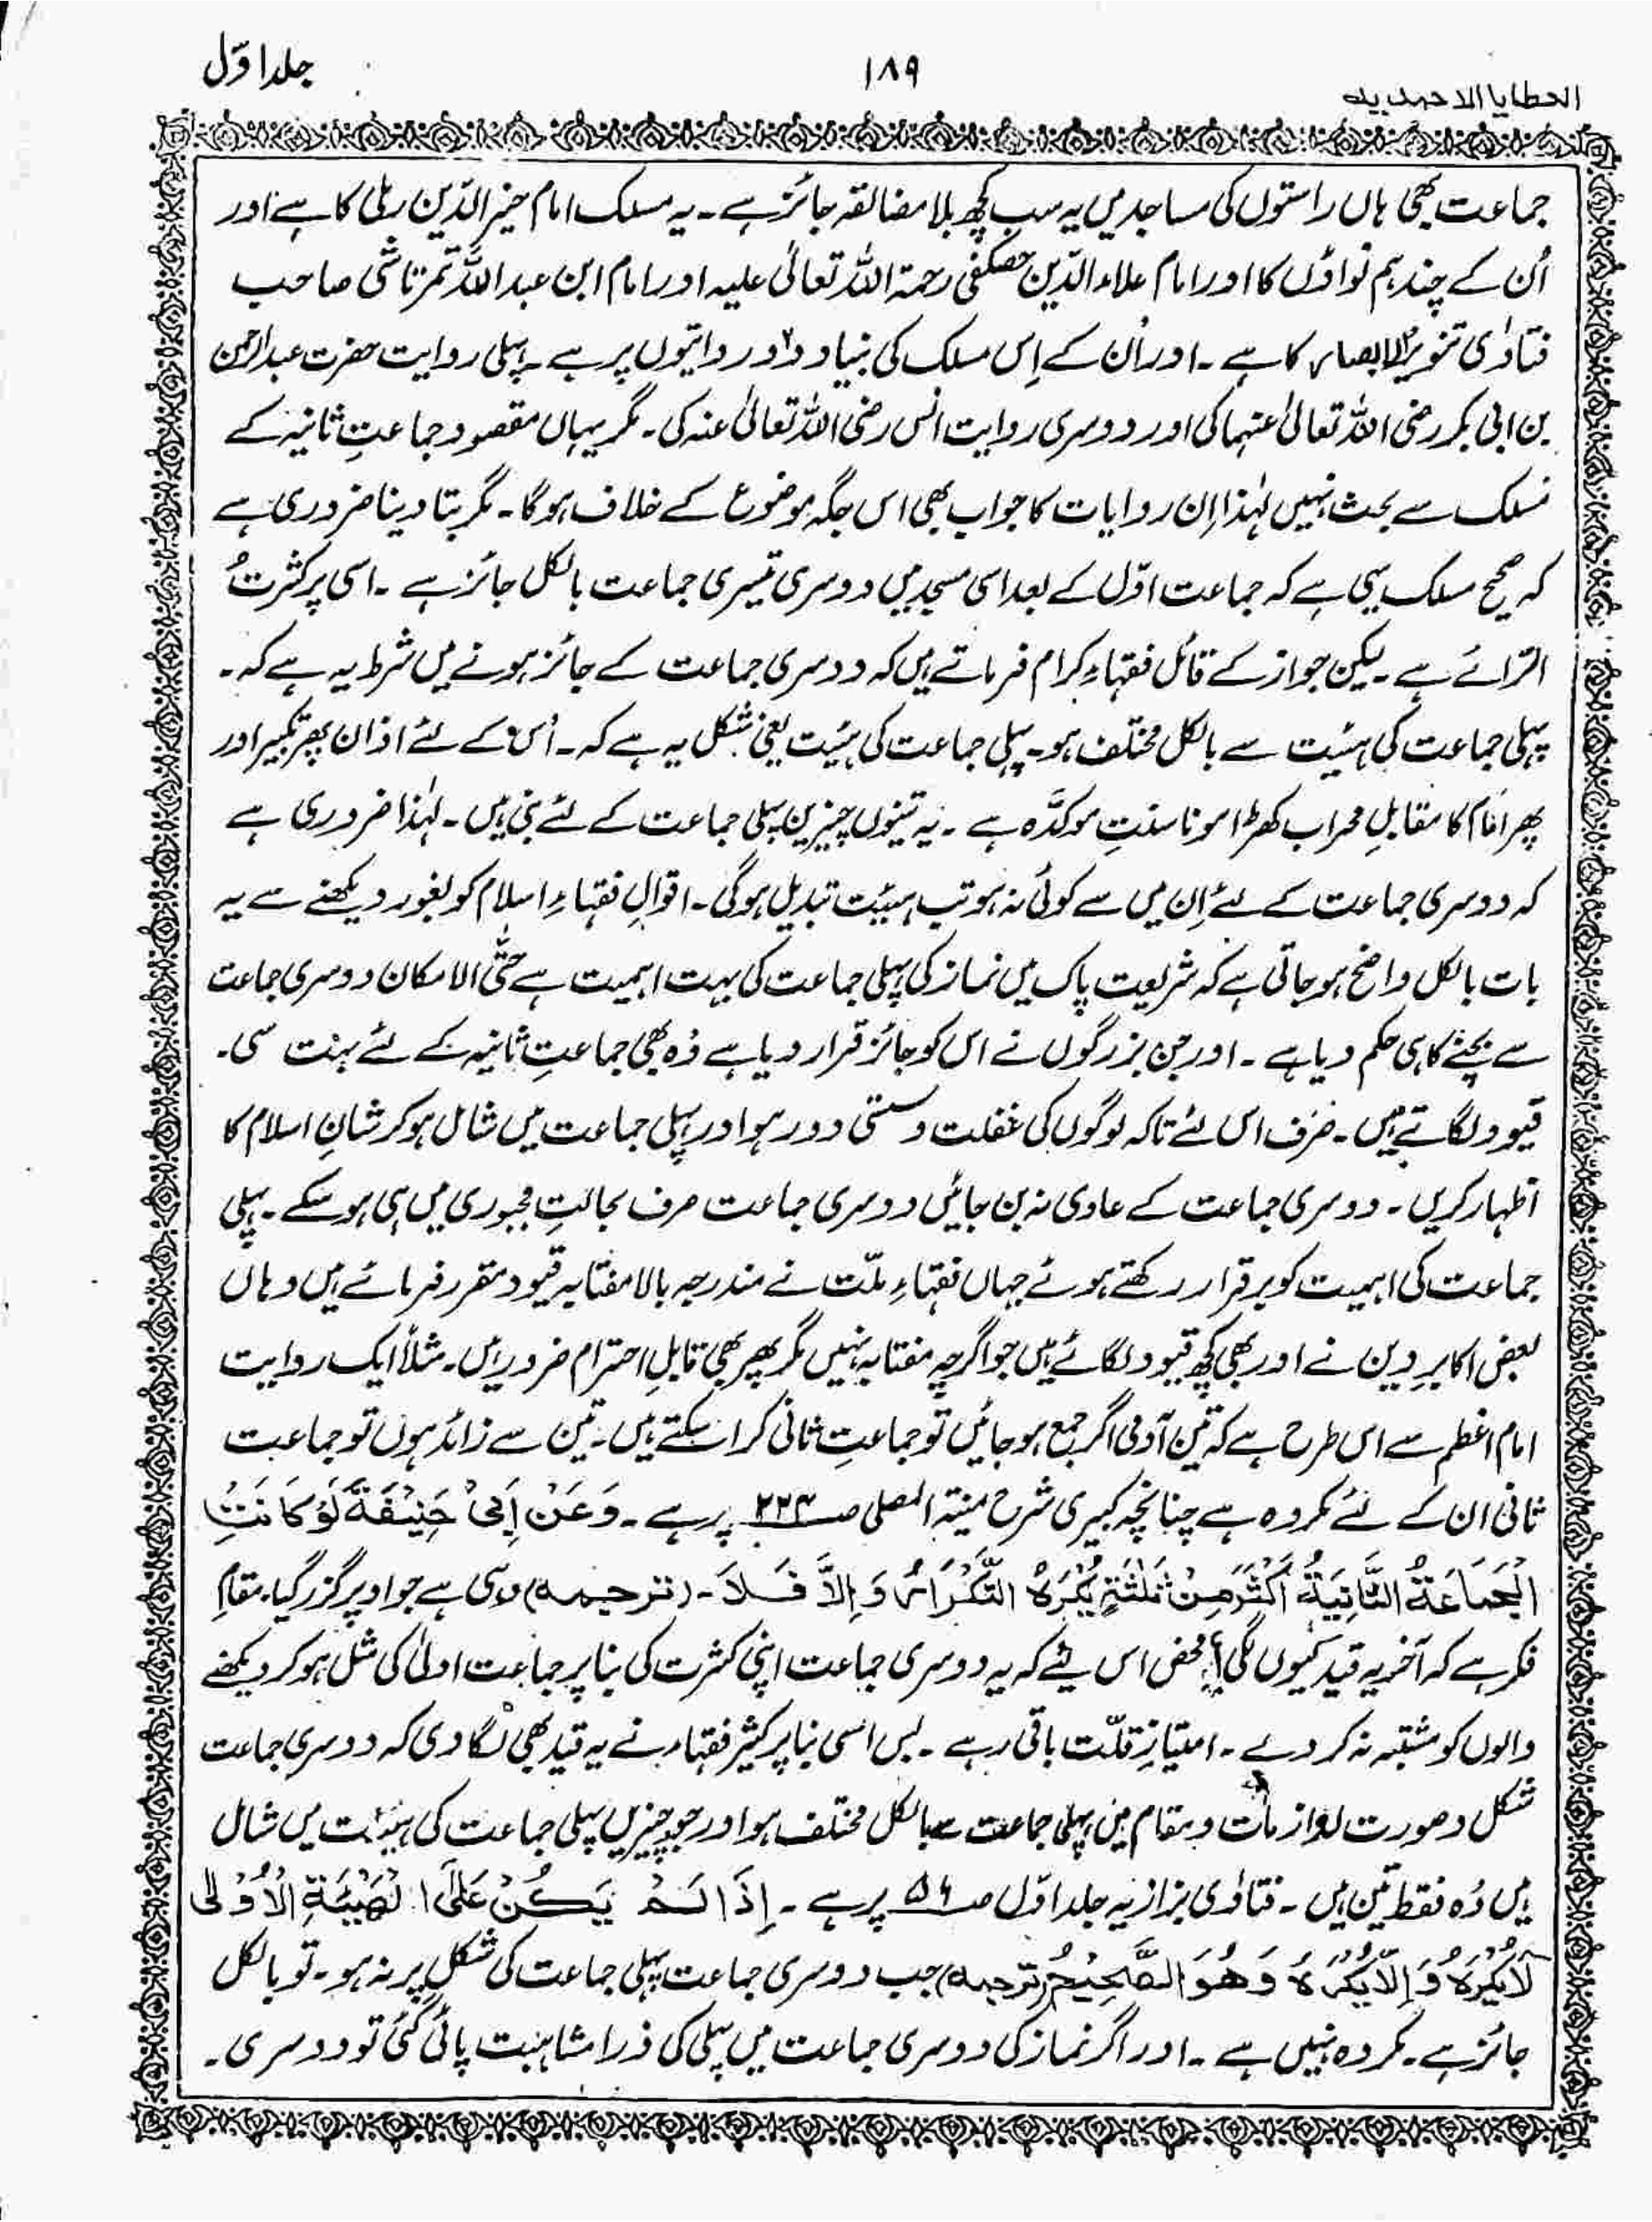 العطایا الاحمدیہ
۱۸۹
جلد اوّل
جماعت بھی ہاں راستوں کی مساجد میں یہ سب کچھ بلا مضائقہ جائز ہے ۔ یہ مسلک امام خیر الدّین رملی کا ہے اور
اُن کے چند ہم نواؤں کا اور امام علاء الدّین حصکفی رحمۃ اللہ تعالٰی علیہ اور امام ابن عبد اللہ تمرتاشی صاحب
فتاوٰی تنویر الابصار کا ہے ۔ اور اُن کے اِس مسلک کی بنیاد دو روایتوں پر ہے ۔ پہلی روایت حضرت عبدالرحمن
بن ابی بکر رضی اللہ تعالیٰ عنہما کی اور دوسری روایت انس رضی اللہ تعالیٰ عنہ کی ۔ مگر یہاں مقصود جماعتِ ثانیہ کے
مسلک سے بحث نہیں لہٰذا اِن روایات کا جواب بھی اس جگہ موضوع کے خلاف ہو گا ۔ مگر بتا دینا ضروری ہے
کہ صحیح مسلک یہی ہے کہ جماعت اوّل کے بعد اسی مسجد میں دوسری تیسری جماعت بالکل جائز ہے ۔ اسی پر کثرتُ
الرّائے ہے ۔ لیکن جواز کے قائل فقہاءِ کرام فرماتے ہیں کہ دوسری جماعت کے جائز ہونے میں شرط یہ ہے کہ ۔
پہلی جماعت کی ہیئت سے بالکل مختلف ہو ۔ پہلی جماعت کی ہیئت یعنی شکل یہ ہے کہ ۔ اُس کے لئے اذان پھر تکبیر اور
پھر امام کا مقابلِ محراب کھڑا ہونا سنتِ موکدّہ ہے ۔ یہ تینوں چیزیں پہلی جماعت کے لئے بنی ہیں ۔ لہٰذا ضروری ہے
کہ دوسری جماعت کے لئے اِن میں سے کوئی نہ ہو تب ہیئت تبدیل ہو گی ۔ اقوالِ فقہاءِ اسلام کو بغور دیکھنے سے یہ
بات بالکل واضح ہو جاتی ہے کہ شریعت پاک میں نماز کی پہلی جماعت کی بہت اہمیت ہے حتّی الامکان دوسری جماعت
سے بچنے کا ہی حکم دیا ہے ۔ اور جن بزرگوں نے اس کو جائز قرار دیا ہے وُہ بھی جماعتِ ثانیہ کے لئے بہت سی ۔
قیود لگاتے ہیں ۔ صرف اس لئے تاکہ لوگوں کی غفلت و سستی دور ہو اور پہلی جماعت میں شامل ہو کر شانِ اسلام کا
اظہار کریں ۔ دوسری جماعت کے عادی نہ بن جائیں دوسری جماعت صرف بحالتِ مجبوری میں ہی ہو سکے ۔ پہلی
جماعت کی اہمیت کو برقرار رکھتے ہوئے جہاں فقہاءِ ملّت نے مندرجہ بالا مفتا بہ قیود مقرر فرمائے ہیں وہاں
بعض اکابرِ دین نے اور بھی کچھ قیود لگائے ہیں جو اگرچہ مفتا بہ نہیں مگر پھر بھی قابلِ احترام ضرور ہیں ۔ مثلاً ایک روایت
امام اعظم سے اس طرح ہے کہ تین آدمی اگر جمع ہو جائیں تو جماعتِ ثانی کرا سکتے ہیں ۔ تین سے زائد ہوں تو جماعت
ثانی ان کے لئے مکروہ ہے چنانچہ کبیری شرح منیۃ المصلی صـ پر ہے ۔ وَعَنْ اَبِیْ حَنِیْفَةَ لَوْ كَانَتِ
الْجَمَاعَةُ الثَّانِيَةُ اَكْثَرَ مِنْ ثَلٰثَةٍ يُكْرَهُ التَّكْرَارُ وَ اِلَّا فَلَا ۔ (ترجمہ) وہی ہے جو اوپر گزر گیا ۔ مقامِ
فکر ہے کہ آخر یہ قید کیوں لگی؟ محض اس لیئے کہ یہ دوسری جماعت اپنی کثرت کی بنا پر جماعت اولیٰ کی مثل ہو کر دیکھنے
والوں کو مشتبہ نہ کر دے ۔ امتیازِ قلّت باقی رہے ۔ بس اسی بنا پر کثیر فقہاء نے یہ قید بھی لگا دی کہ دوسری جماعت
شکل و صورت لوازمات و مقام میں پہلی جماعت سے بالکل مختلف ہو اور جو چیزیں پہلی جماعت کی ہیئت میں شامل
ہیں وُہ فقط تین ہیں ۔ فتاوٰی بزازیہ جلد اوّل صـ ۵۶ پر ہے ۔ اِذَا لَمْ يَكُنْ عَلَی الْهَيْئَةِ الْاُوْلٰی
لَا يُكْرَهُ وَ اِلَّا يُكْرَهُ وَ هُوَ الصَّحِيْحُ (ترجمہ) جب دوسری جماعت پہلی جماعت کی شکل پر نہ ہو ۔ تو بالکل
جائز ہے ۔ مکروہ نہیں ہے ۔ اور اگر نماز کی دوسری جماعت میں پہلی کی ذرا مشابہت پائی گئی تو دوسری ۔